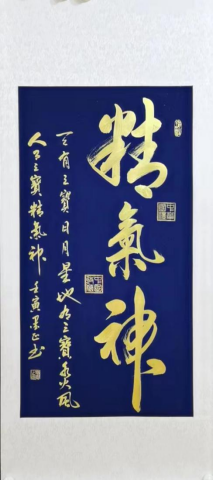 精氣神
天有三寶日月星地有三寶水火風
人有三寶精氣神 壬寅